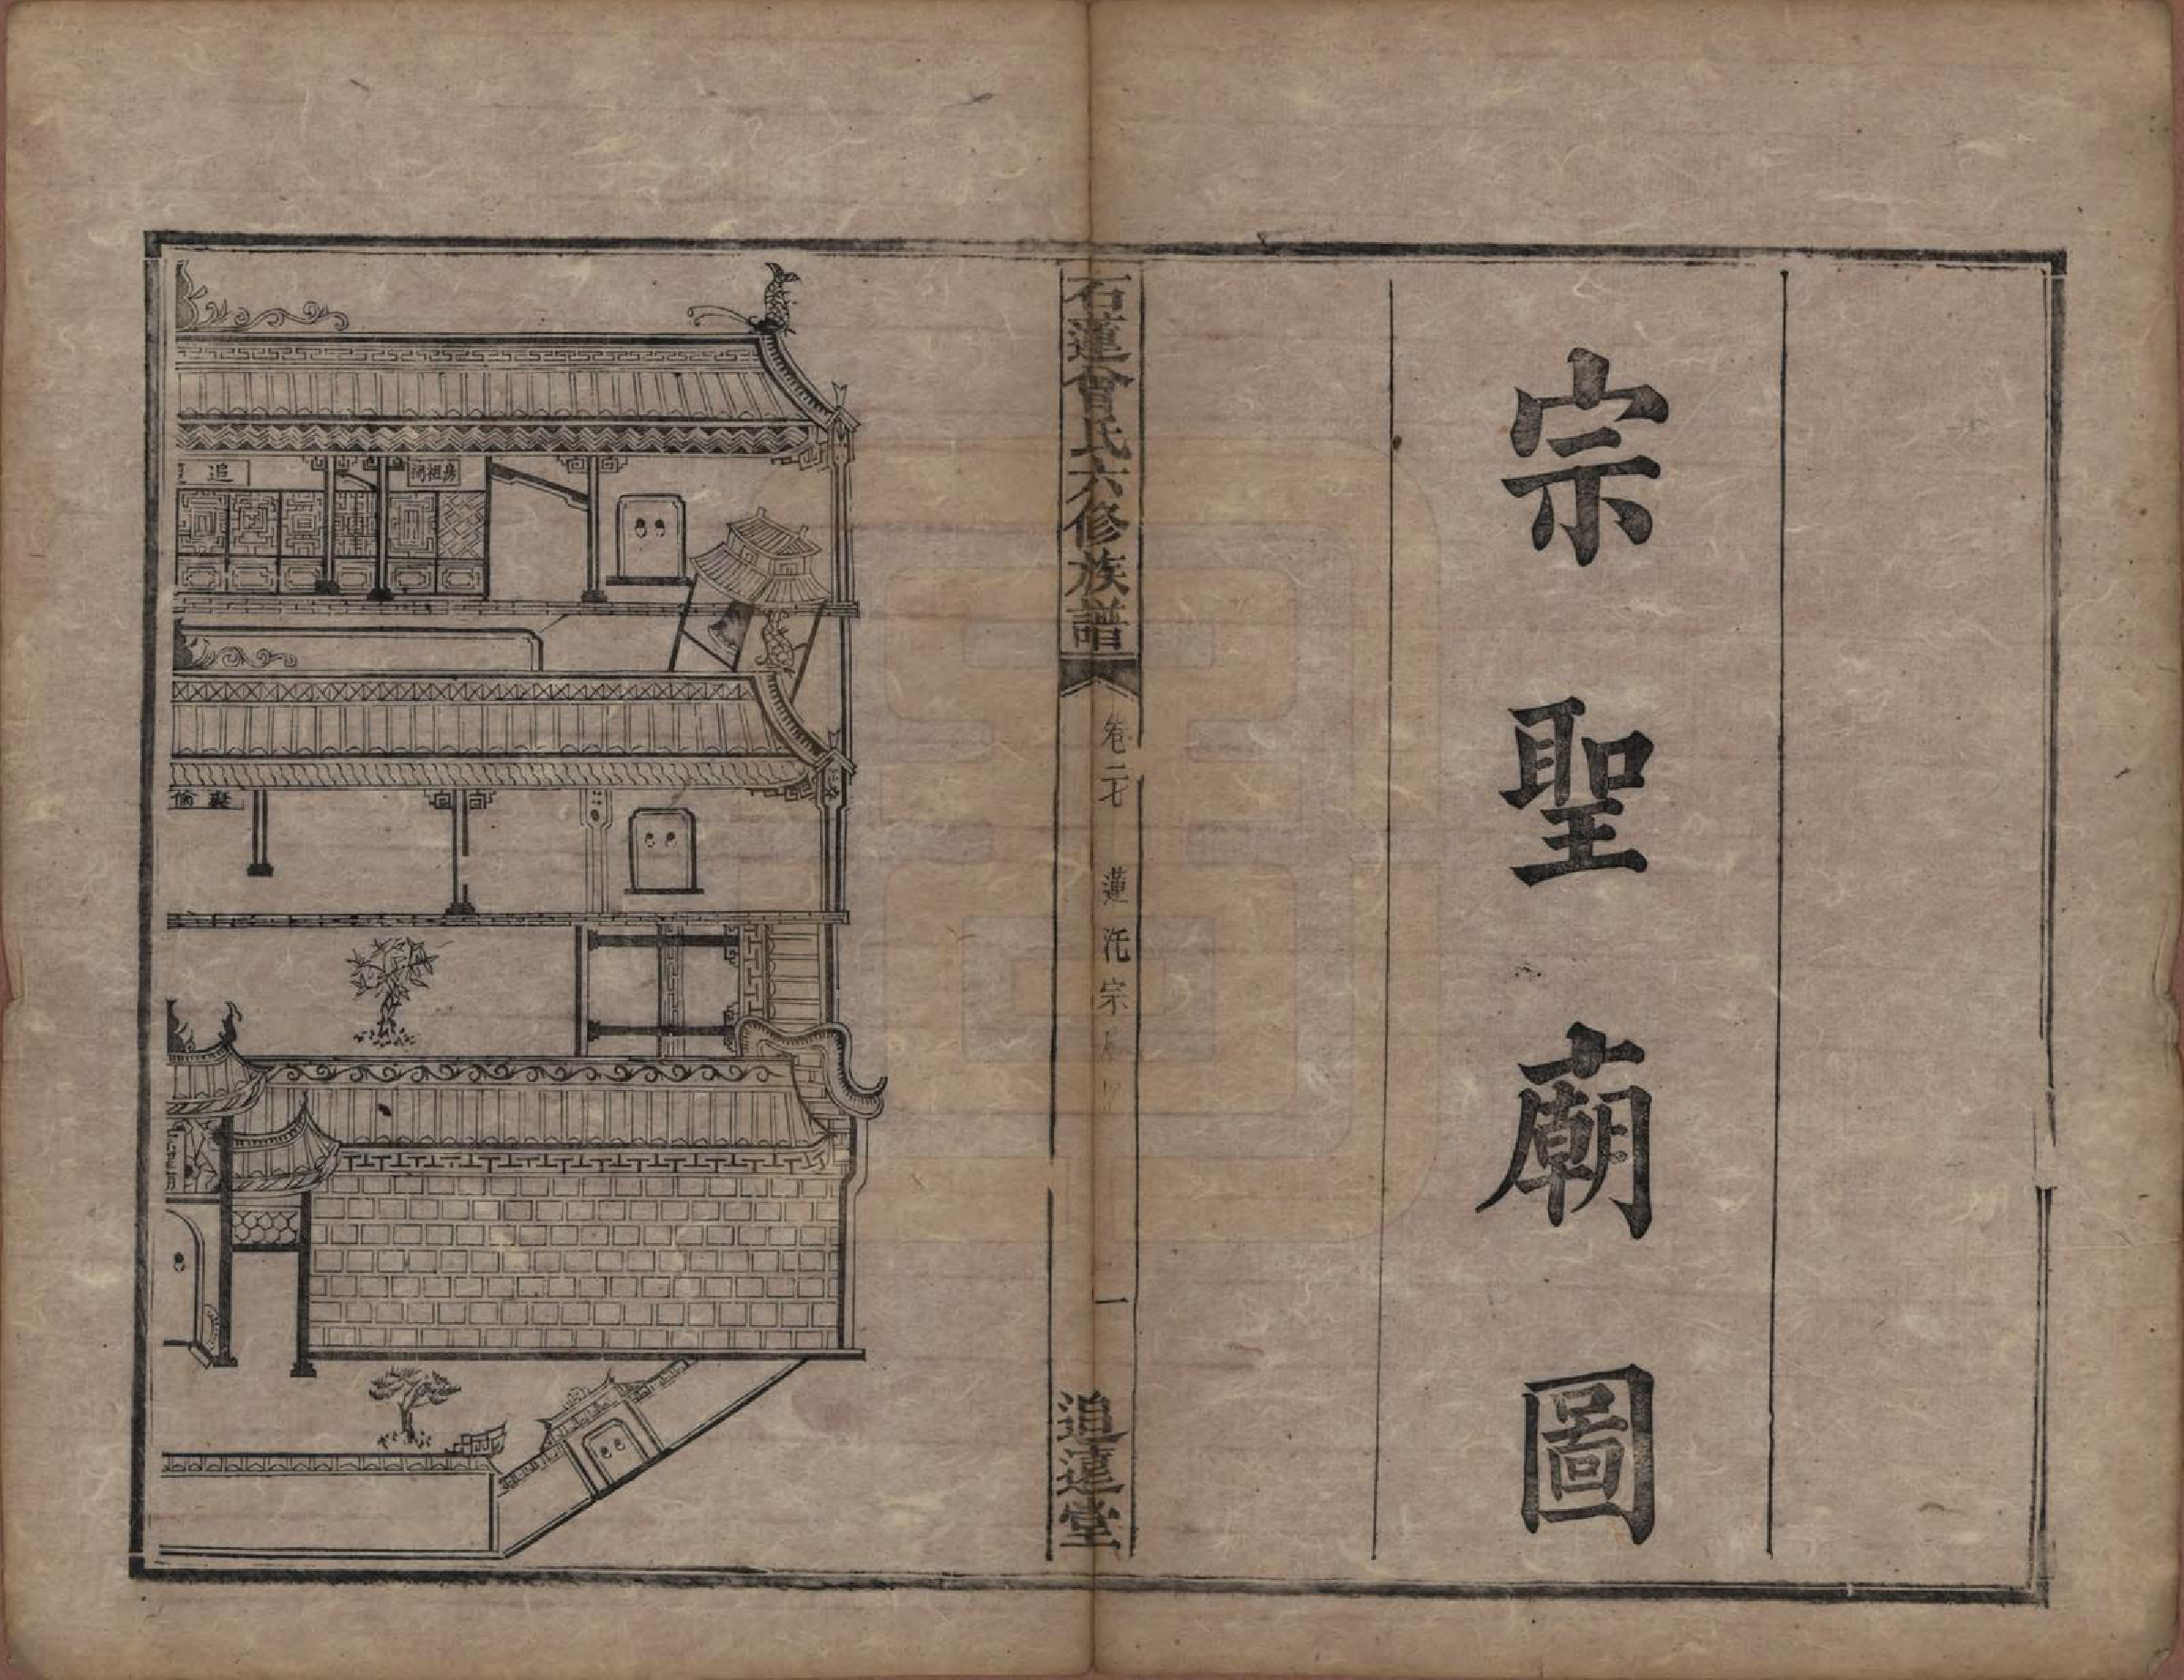 宗聖廟圖
石蓮曾氏六修族譜
卷二七
蓮沱宗
一
追遠堂
追
房祖祠
敦倫